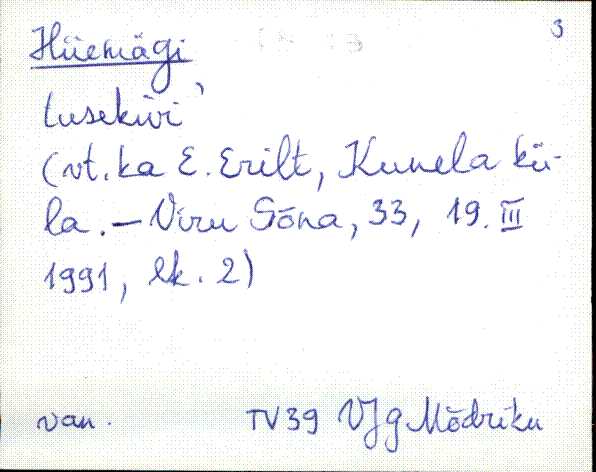 3
Hiiemägi
lusekivi
(vt. ka E. Erilt, Kunela kü-
la. — Viru Sõna, 33, 19. III
1991, lk. 2)
van. TV39 VJg Mõdriku